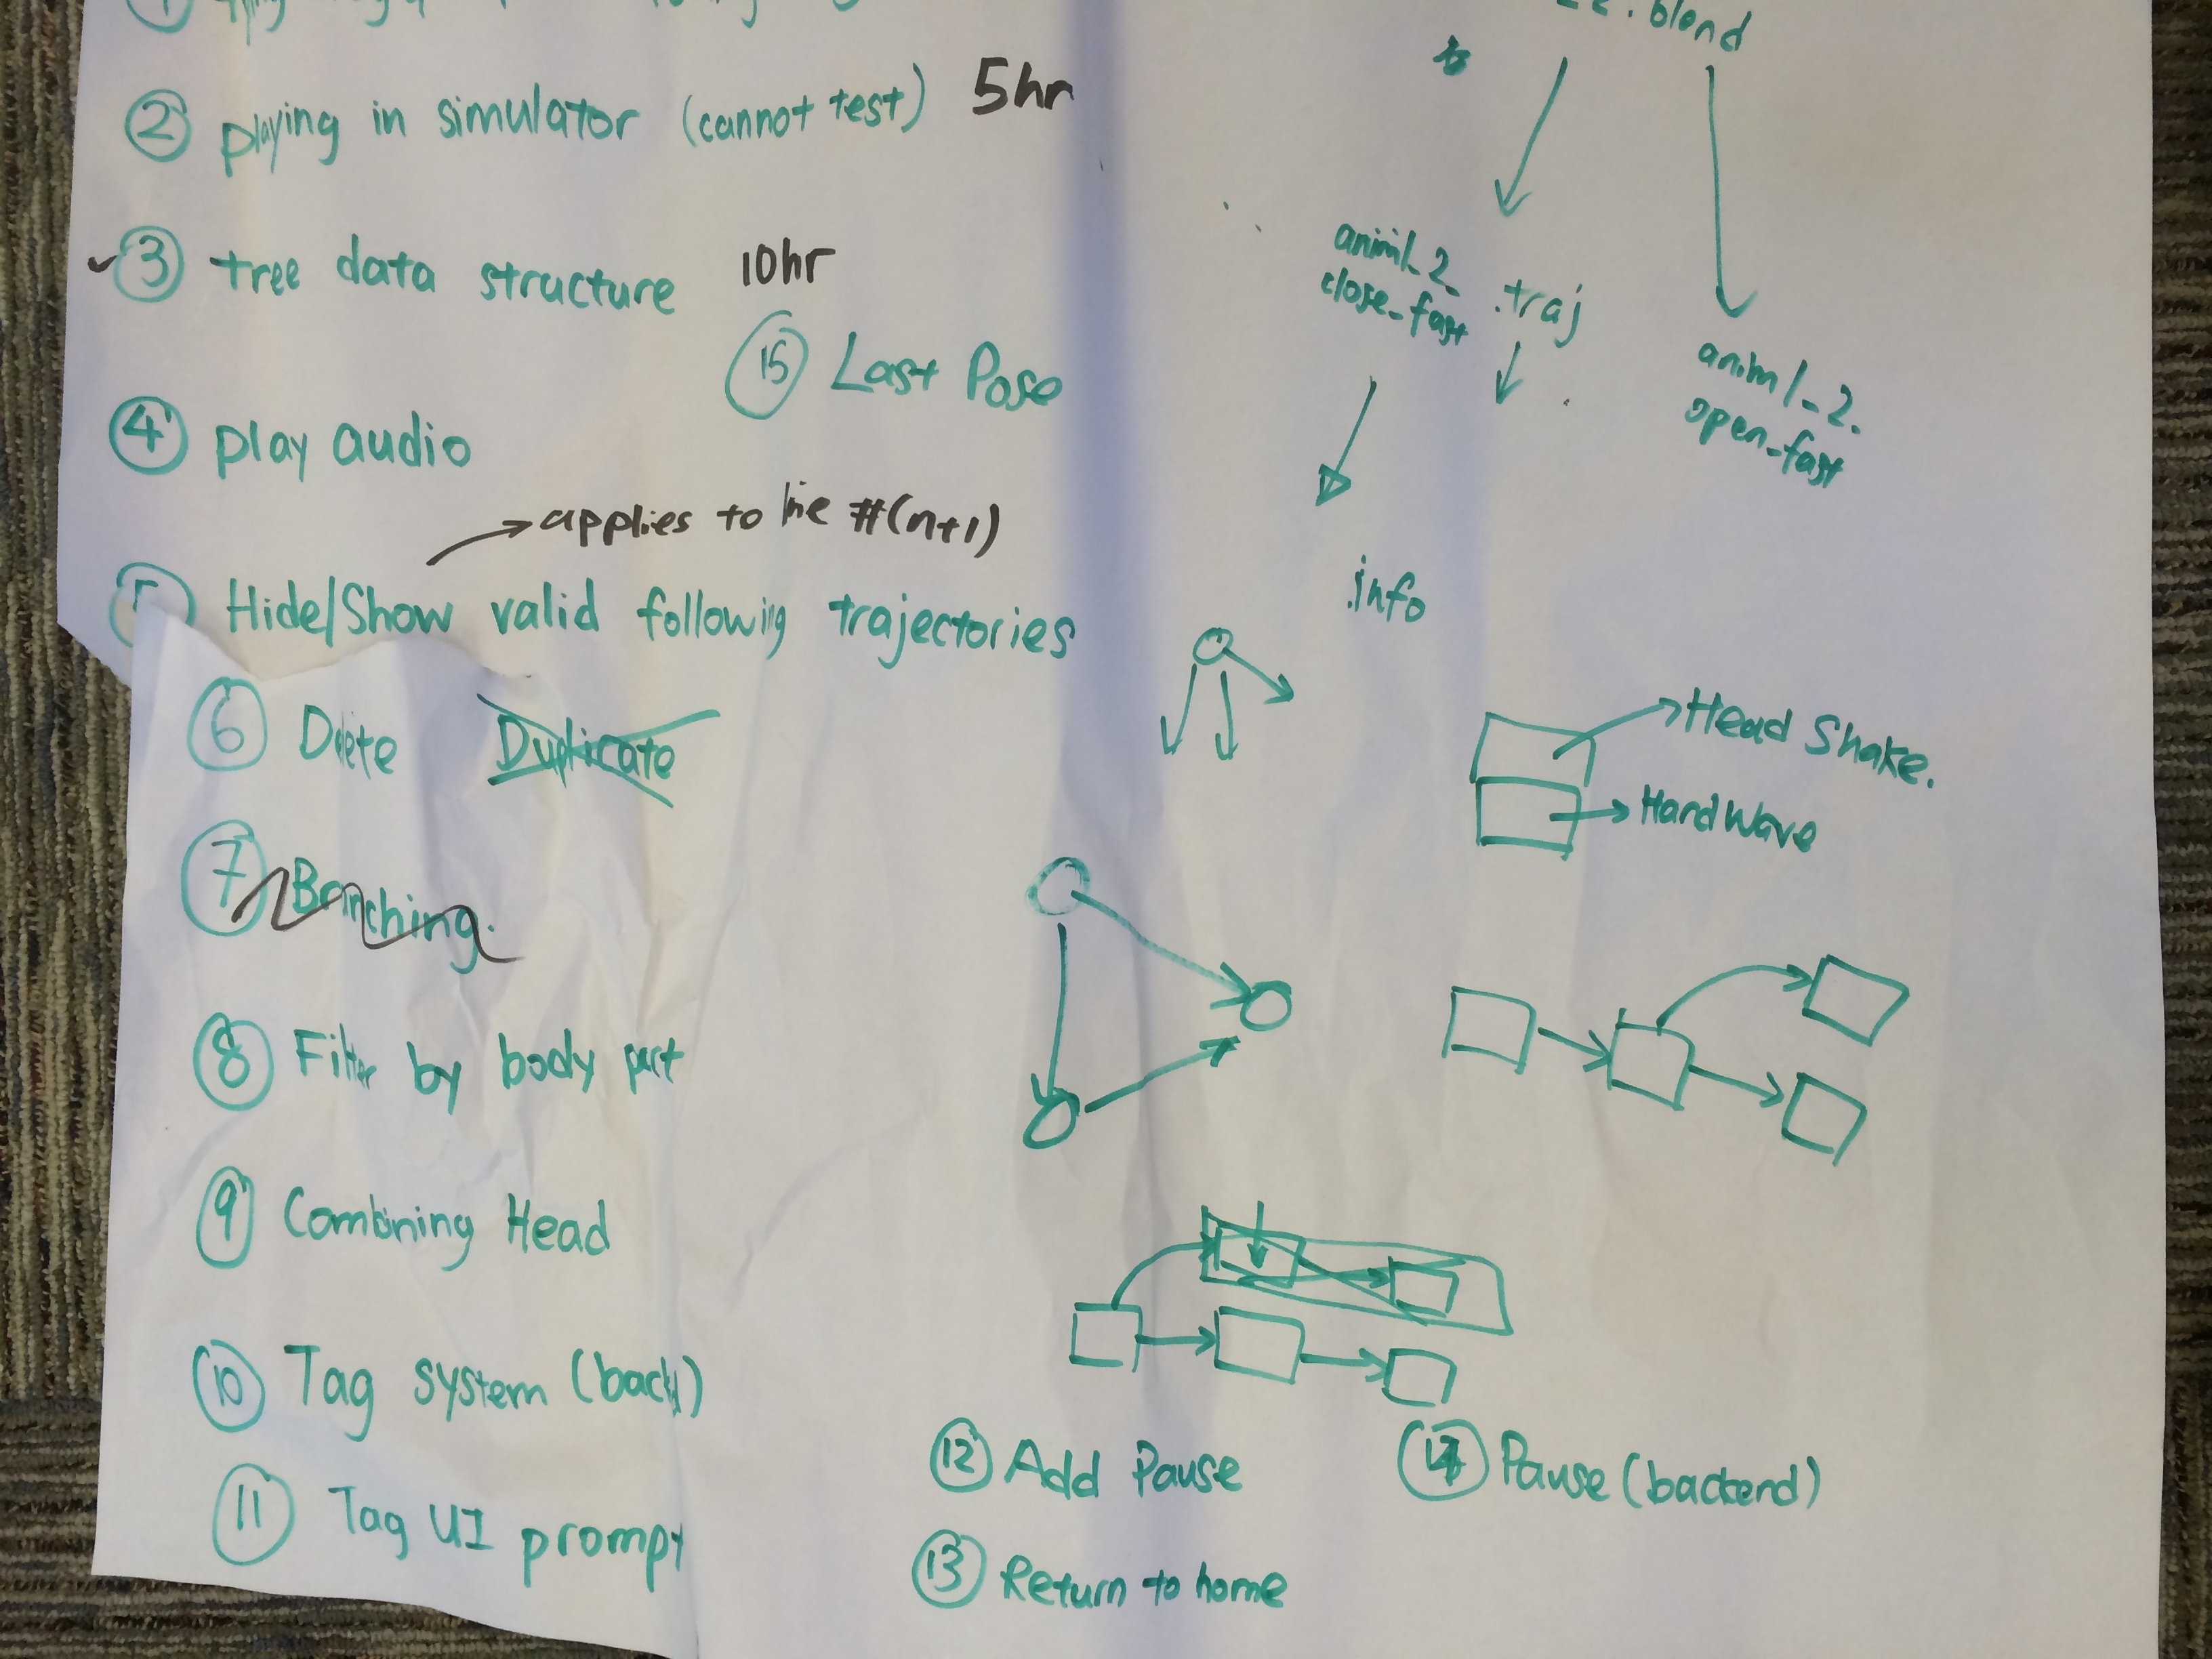 ② playing in simulator (cannot test) 5hr
③ tree data structure 10hr
⑮ Last Pose
④ play audio
applies to line #(n+1)
⑤ Hide/Show valid following trajectories
⑥ Delete Duplicate
⑦ Branching.
⑧ Filter by body part
⑨ Combining Head
⑩ Tag system (back)
⑪ Tag UI prompt
.blend
animl_2_
close_fast
.traj
animl_2.
open_fast
.info
Head Shake.
Hand Wave
⑫ Add Pause
⑭ Pause (backend)
⑬ Return to home